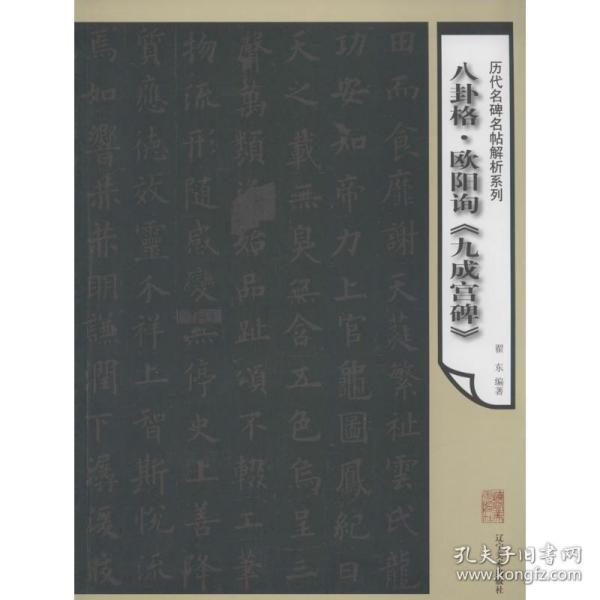 历代名碑名帖解析系列
八卦格·欧阳询《九成宫碑》
翟东 编著
田而食靡謝天莛繁祉雲氏龍
功安知帝力上官龜圖鳳紀日
天之載無臭無含五色烏呈一
聲萬類 始品趾頌不輟工筆
物流形隨感變無停史上善降
質應德效靈不祥上智斯悅流
焉如響 明謙潤下潺湲皎
孔夫子旧书网
www.kongfz.com